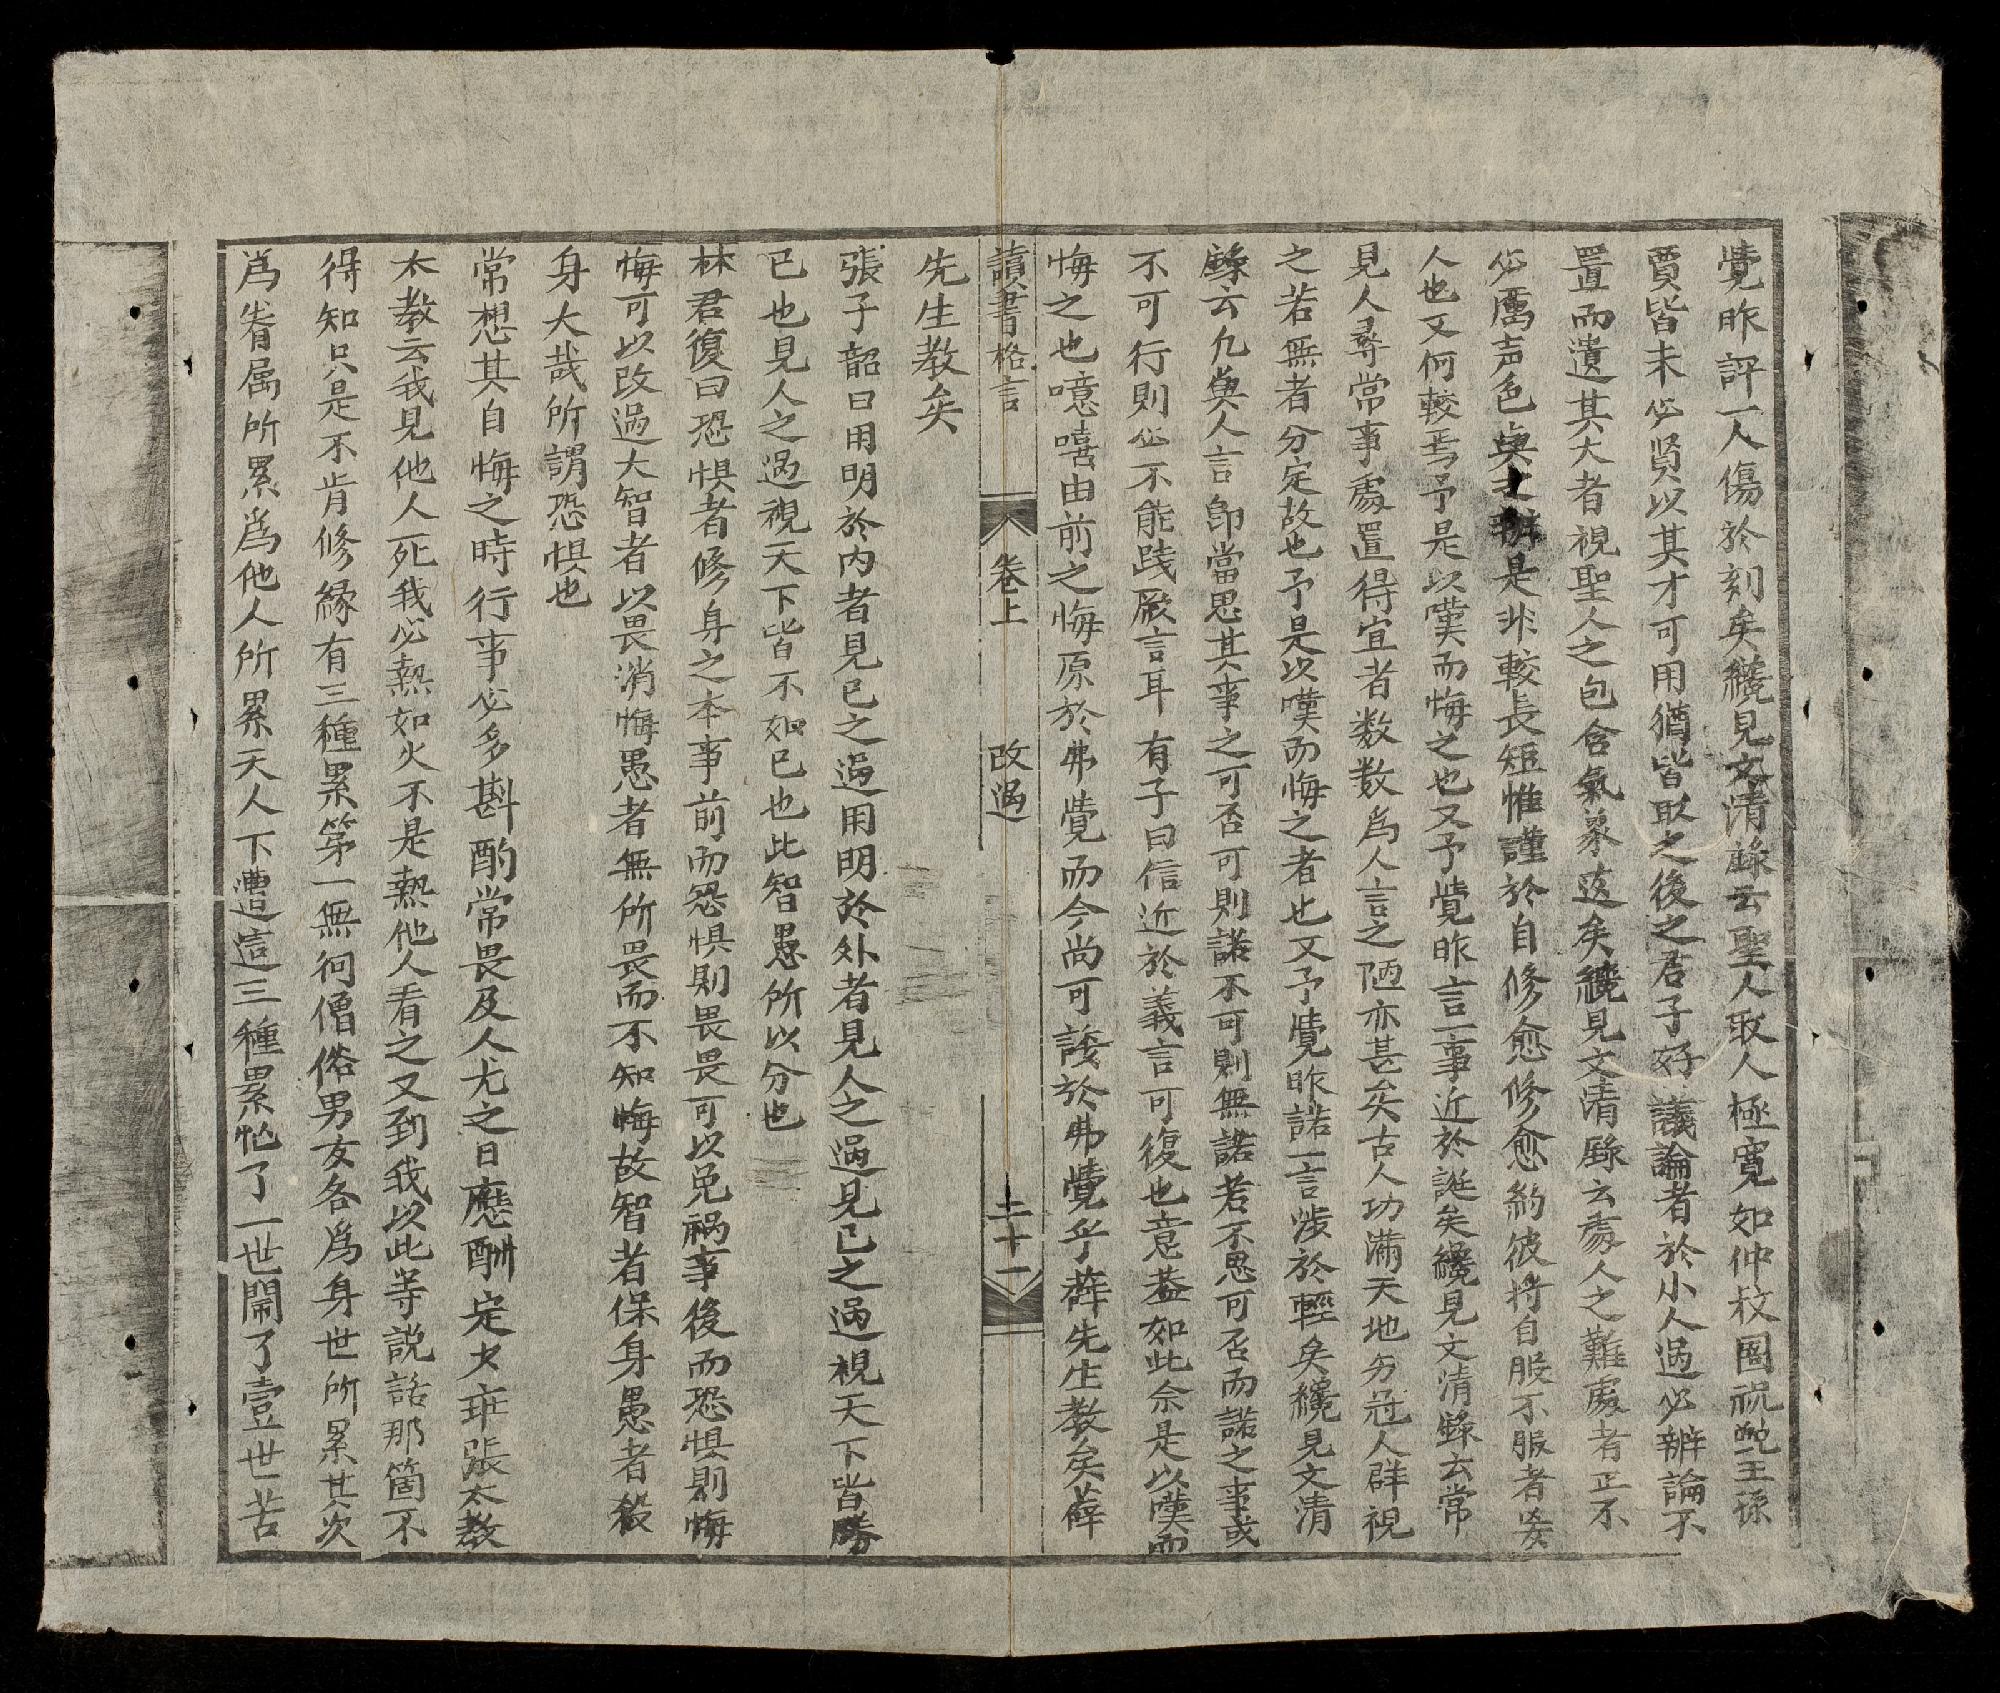 覺昨評一人傷於刻矣纔見文清錄云聖人取人極寬如仲叔圉祝鮀王孫
賈皆未必賢以其才可用猶皆取之後之君子好議論者於小人過必辨論不
置而遺其大者視聖人之包含氣象遠矣纔見文清錄云處人之難處者正不
必厲声色與之辨是非較長短惟謹於自修愈修愈約彼將自服不服者妄
人也又何較焉予是以嘆而悔之也又予覺昨言一事近於誕矣纔見文清錄云常
見人尋常事處置得宜者数数為人言之陋亦甚矣古人功滿天地勿冠人群視
之若無者分定故也予是以嘆而悔之者也又予覺昨諾一言涉於輕矣纔見文清
錄云凡與人言即當思其事之可否可則諾不可則無諾若不思可否而諾之事或
不可行則必不能踐厥言耳有子曰信近於義言可復也意蓋如此余是以嘆而
悔之也噫嘻由前之悔原於弗覺而今尚可諉於弗覺乎薛先生教矣薛
讀書格言
卷上
改過
二十一
先生教矣
張子韶曰用明於內者見己之過用明於外者見人之過見己之過視天下皆勝
己也見人之過視天下皆不如己也此智愚所以分也
林君復曰恐惧者修身之本事前而恐惧則畏畏可以免禍事後而恐惧則悔
悔可以改過大智者以畏消悔愚者無所畏而不知悔故智者保身愚者殺
身大哉所謂恐惧也
常想其自悔之時行事必多斟酌常畏及人尤之日應酬定少班張太教
太教云我見他人死我必熱如火不是熱他人看之又到我以此等説話那箇不
得知只是不肯修緣有三種累第一無问僧俗男女各為身世所累其次
為眷属所累為他人所累天人下遭這三種累忙了一世鬧了壹世苦